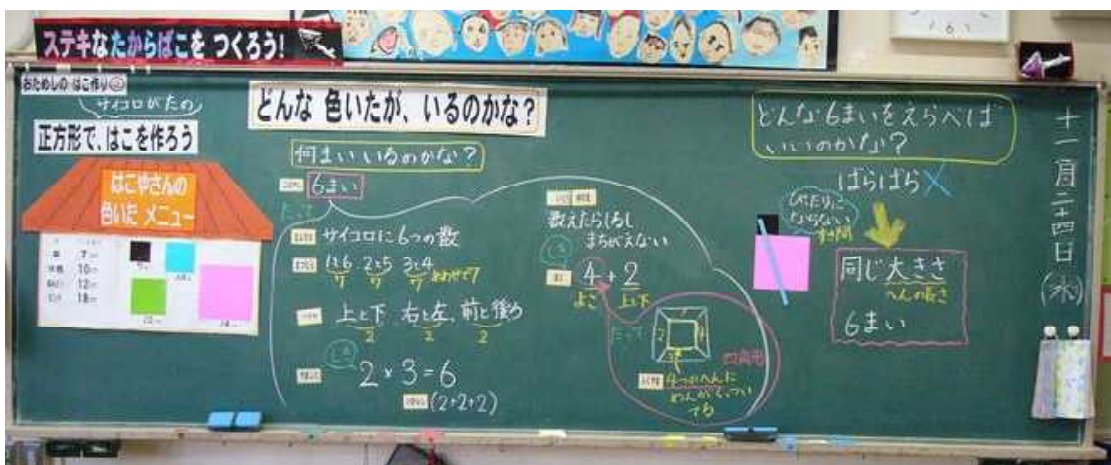 ステキなたからばこを つくろう!
おためしの はこ作り
サイコロがたの
正方形で、はこを作ろう
はこやさんの
色いた メニュー
7cm
10cm
12cm
18cm
どんな 色いたが、いるのかな?
何まい いるのかな?
6まい
サイコロに6つの数
1と6 2と5 3と4 あわせて7
7 7 7
上と下 右と左、前と後ろ
2 2 2
しき
2×3=6
(2+2+2)
数えたらくろし
まちがえない
4+2
よこ 上と下
四角形
4つのへんに
めんがくっつい
てる
どんな6まいをえらべば
いいのかな?
ばらばら×
ぴったりに
ならない
すき間
同じ大きさ
へんの長さ
6まい
十一月二十四日(水)